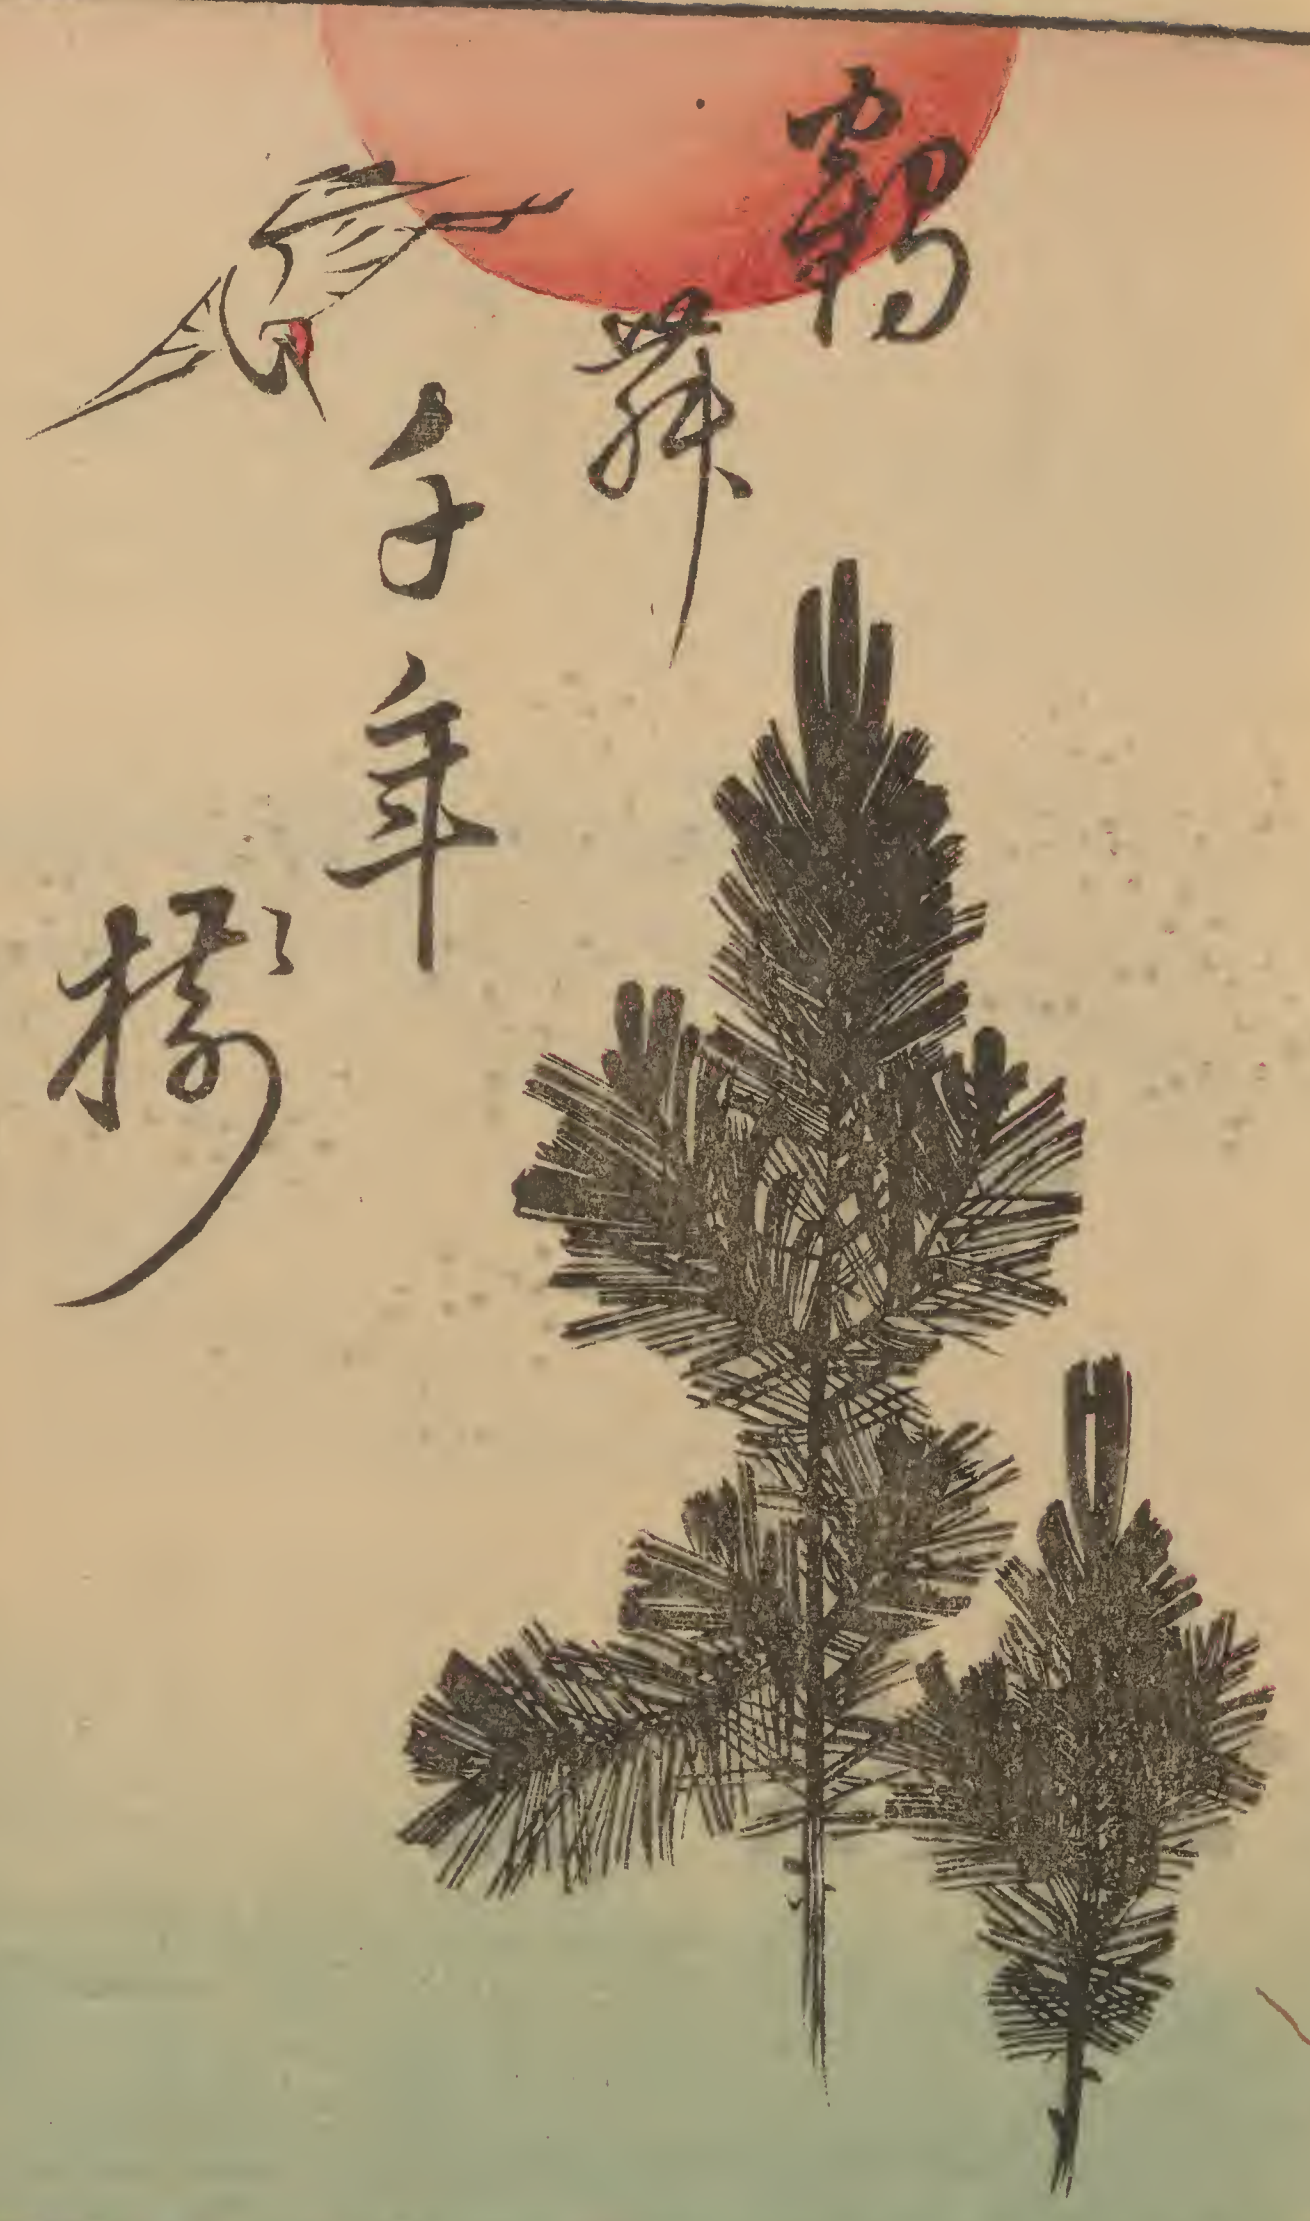 鶴
舞
千年
樹